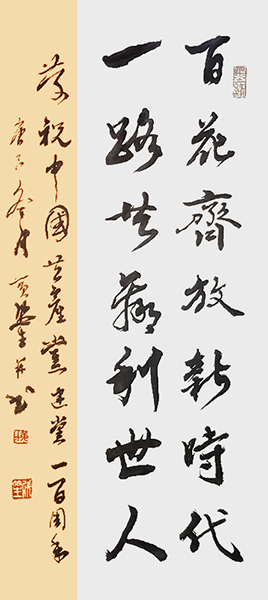 百花齊放新時代
一路共贏利世人
慶祝中國共產黨建黨一百周年
庚子冬月 生并書